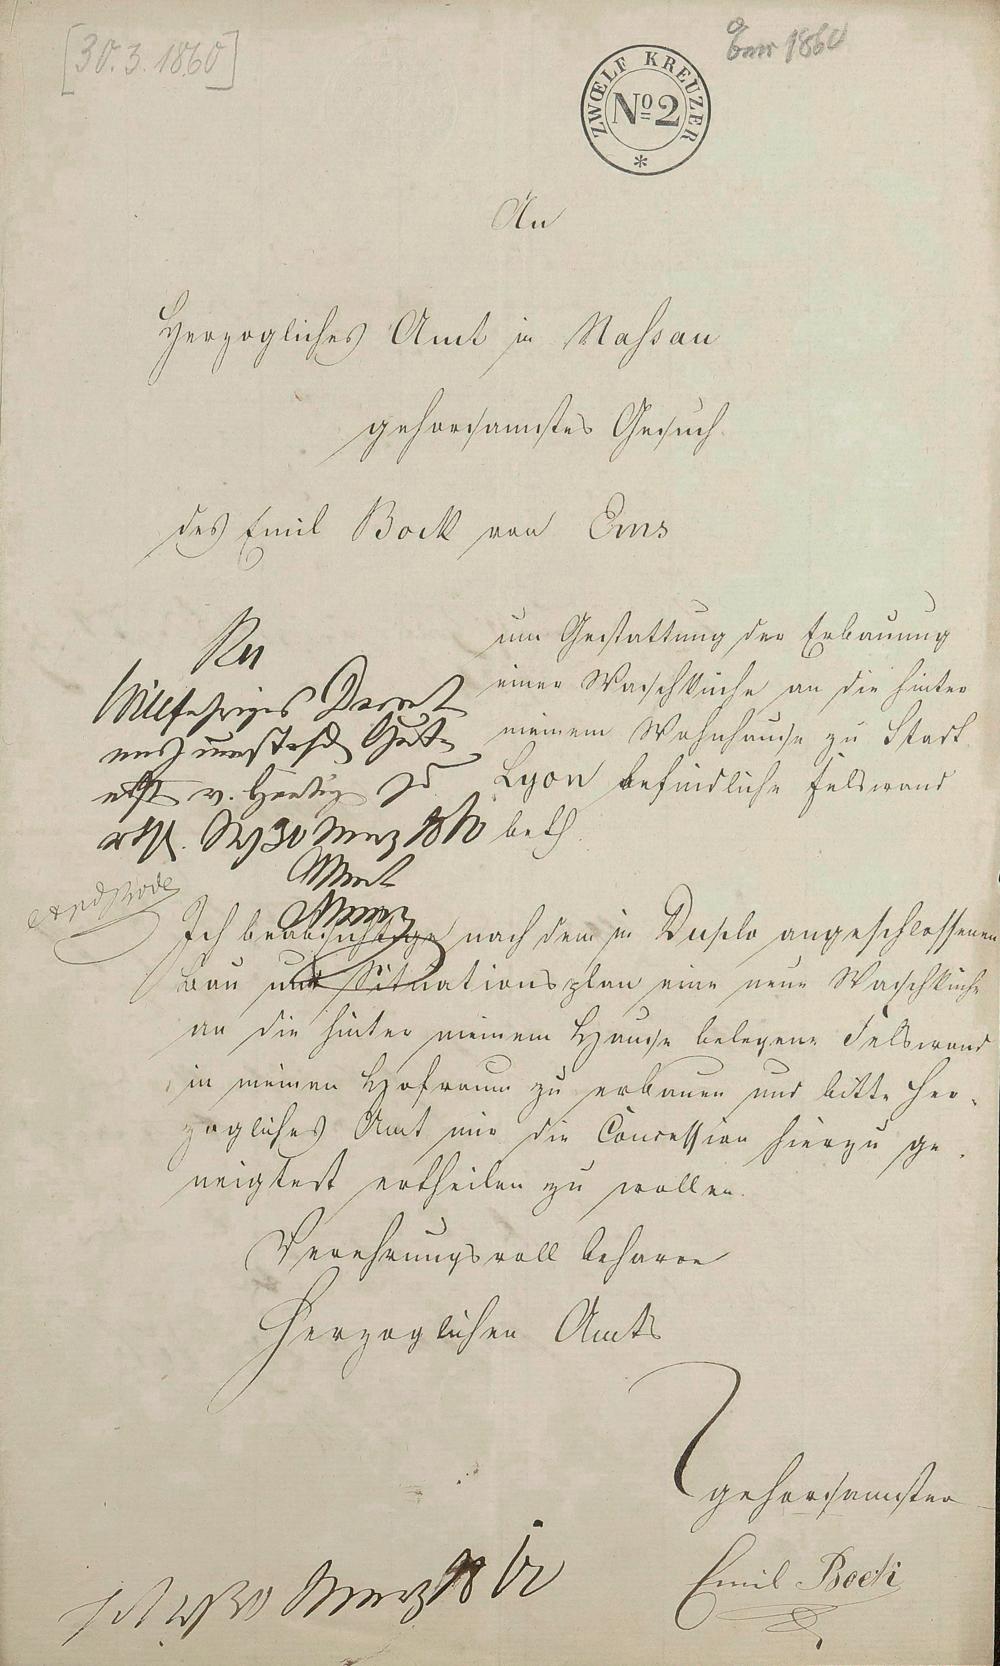 [30.3.1860]
1860
ZWŒLF KREUZER
No 2
An
Herzogliches Amt in Nassau
gehorsamstes Gesuch
des Emil Bock von Ems
um Gestattung der Erbauung
einer Waschküche an die hinter
meinem Wohnhause zu Stadt
Lyon befindliche Felswand
betr.
Willfähriges Decret
v.
30 März 1860
Amt
Ich beabsichtige nach dem in Duplo angeschlossenen
Bau und Situationsplan eine neue Waschküche
an die hinter meinem Hause belegene Felswand
in meinen Hofraum zu erbauen und bitte Her-
zogliches Amt mir die Concession hierzu ge-
neigtest ertheilen zu wollen.
Verehrungsvoll beharre
Herzoglichen Amts
gehorsamster
Emil Bock
30 März 18